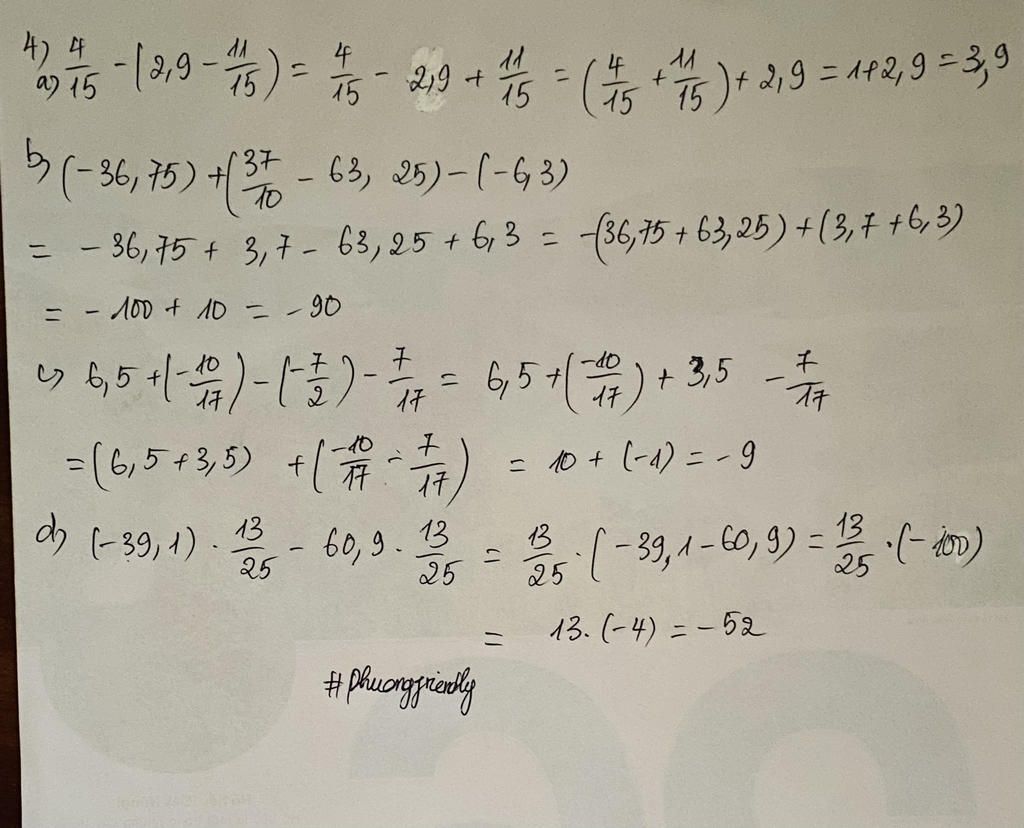 4) a) 4/15 - (2,9 - 11/15) = 4/15 - 2,9 + 11/15 = (4/15 + 11/15) + 2,9 = 1+2,9 = 3,9
b) (-36,75) + (37/10 - 63,25) - (-6,3)
= -36,75 + 3,7 - 63,25 + 6,3 = -(36,75 + 63,25) + (3,7 + 6,3)
= -100 + 10 = -90
c) 6,5 + (-10/17) - (-7/2) - 7/17 = 6,5 + (-10/17) + 3,5 - 7/17
= (6,5 + 3,5) + (-10/17 - 7/17) = 10 + (-1) = -9
d) (-39,1) . 13/25 - 60,9 . 13/25 = 13/25 . (-39,1 - 60,9) = 13/25 . (-100)
= 13. (-4) = -52
#phuongfriendly